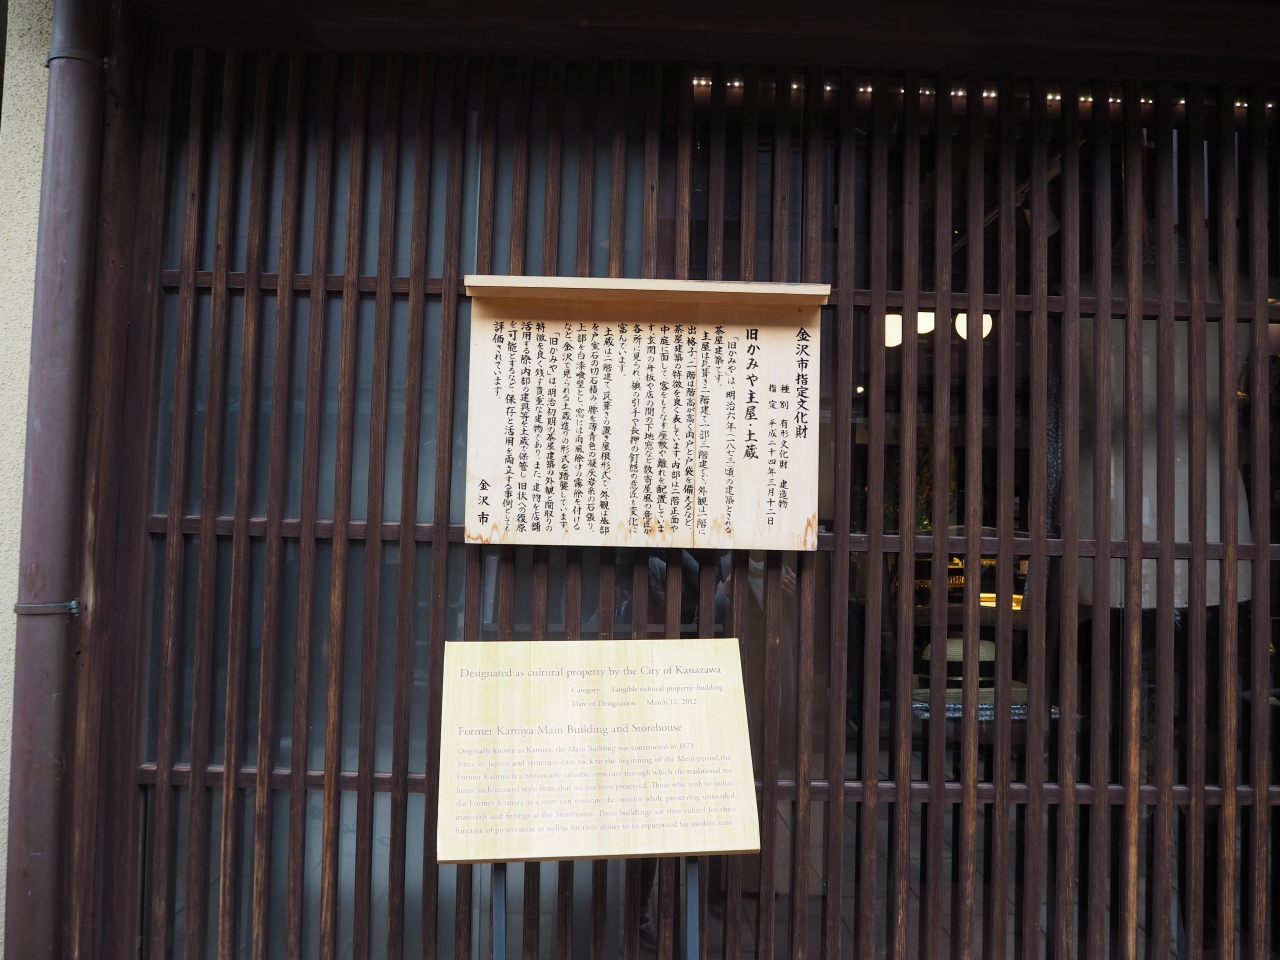 金沢市指定文化財
種別 有形文化財 建造物
指定 平成二十四年三月十二日
旧かみや主屋・土蔵
「旧かみや」は、明治六年(一八七三)頃の建築とされる
茶屋建築です。
主屋は瓦葺き二階建て一部三階建てで、外観は一階に
出格子、二階は階高が高く雨戸と戸袋を備えるなど、
茶屋建築の特徴を良く表しています。内部は二階正面や
中庭に面して、客をもてなす座敷や離れを配置していま
す。玄関の舟板や店の間の下地窓など数寄屋風の意匠が
各所に見られ、襖の引手や長押の釘隠の意匠も変化に
富んでいます。
土蔵は二階建て、瓦葺きの置き屋根形式で、外観は基部
を戸室石の切石積み、腰を薄青色の凝灰岩系の石張り、
上部を白漆喰壁とし、窓には雨風除けの霧除を付ける
など、金沢で見られる土蔵造りの形式を踏襲しています。
「旧かみや」は、明治初期の茶屋建築の外観と間取りの
特徴を良く残す貴重な建物であり、また、建物を店舗
活用する際、内部の建具等を土蔵で保管し、旧状への復原
を可能とするなど、保存と活用を両立する事例としても
評価されています。
金沢市
Designated as cultural property by the City of Kanazawa
Category Tangible cultural property: building
Date of Designation March 12, 2012
Former Kamiya Main Building and Storehouse
Originally known as Kamiya, the Main Building was constructed in 1873.
Since its layout and structure date back to the beginning of the Meiji period, the
Former Kamiya is a historically valuable structure through which the traditional tea
house architectural style from that era has been preserved. Those who wish to utilize
the Former Kamiya as a store can renovate the interior while preserving unneeded
materials and fittings at the Storehouse. These buildings are thus valued for their
function of preservation as well as for their ability to be repurposed for modern uses.